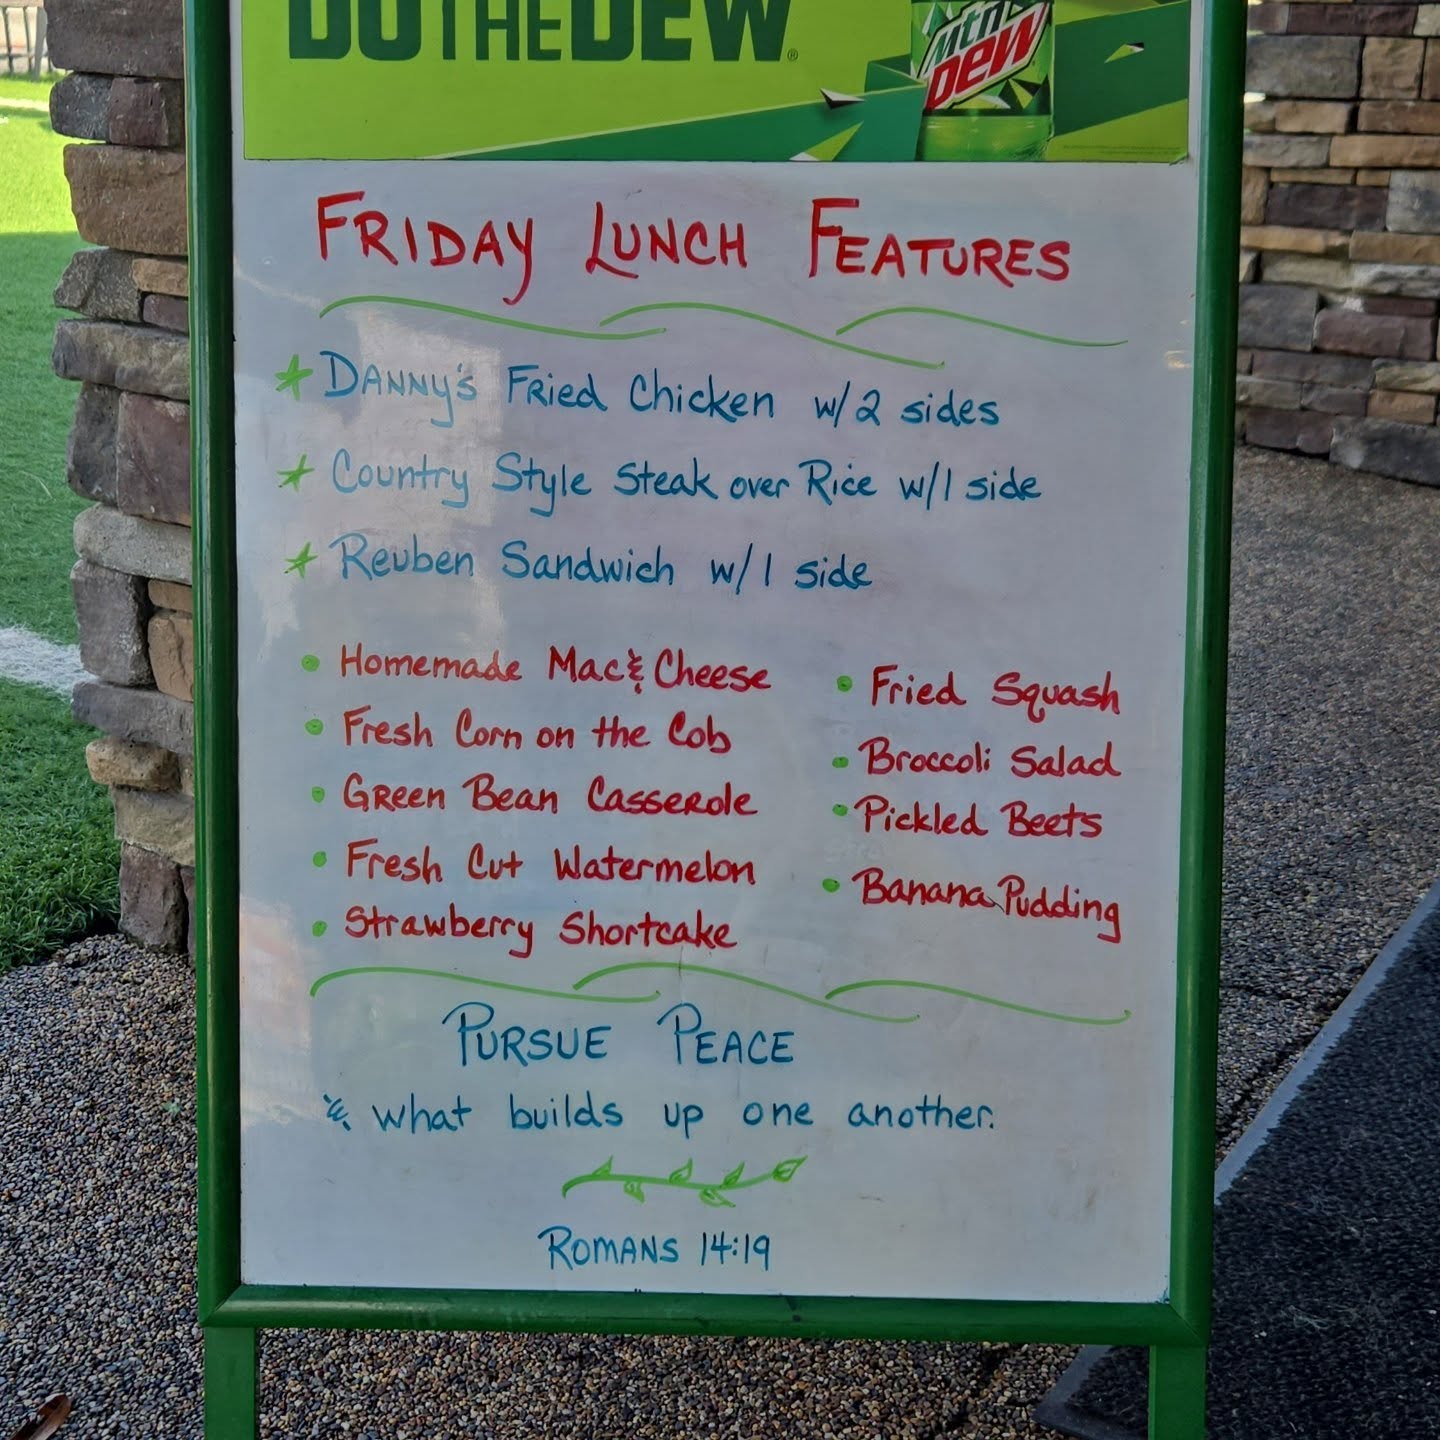 DO THE DEW®
mtn
DEW
FRIDAY LUNCH FEATURES
* DANNY'S FRied Chicken w/2 sides
* Country Style Steak over Rice w/1 side
* Reuben Sandwich w/1 side
• Homemade Mac & Cheese
• Fresh Corn on the Cob
• GReen Bean Casserole
• Fresh Cut Watermelon
• Strawberry Shortcake
• Fried Squash
• Broccoli Salad
• Pickled Beets
• Banana Pudding
PURSUE PEACE
& what builds up one another.
ROMANS 14:19